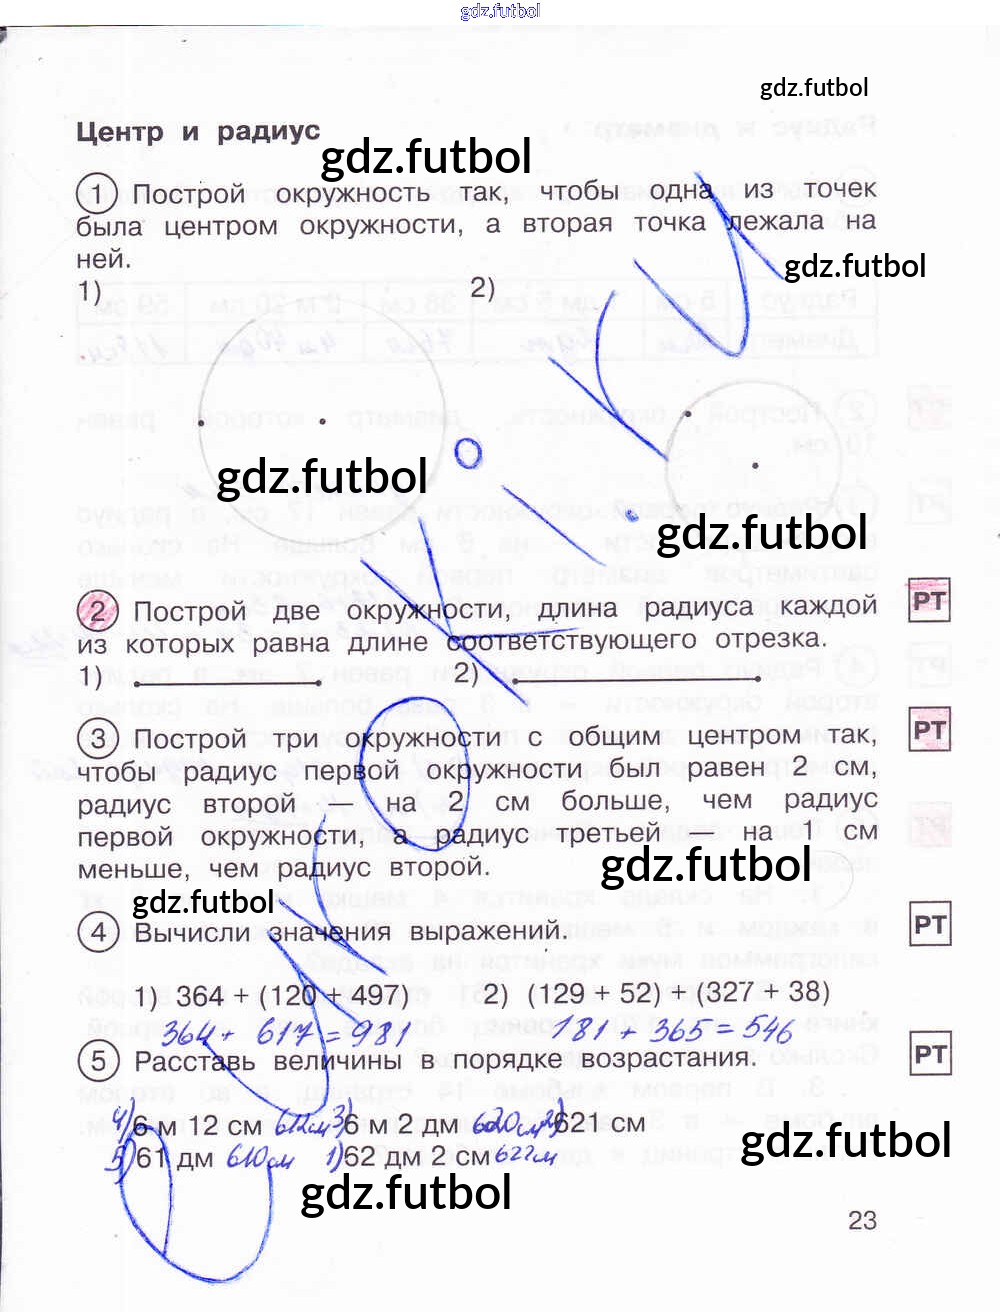 gdz.futbol
gdz.futbol
Центр и радиус
gdz.futbol
1 Построй окружность так, чтобы одна из точек
была центром окружности, а вторая точка лежала на
ней.
gdz.futbol
1) 2)
gdz.futbol
gdz.futbol
2 Построй две окружности, длина радиуса каждой РТ
из которых равна длине соответствующего отрезка.
1) 2)
3 Построй три окружности с общим центром так, РТ
чтобы радиус первой окружности был равен 2 см,
радиус второй — на 2 см больше, чем радиус
первой окружности, а радиус третьей на см
меньше, чем радиус второй.
gdz.futbol
gdz.futbol
4 Вычисли значения выражений. РТ
1) 364 + (120 + 497) 2) (129 + 52) + (327 + 38)
364 + 617 = 981 181 + 365 = 546
5 Расставь величины в порядке возрастания. РТ
4) 6 м 12 см 612см 3) 6 м 2 дм 620см 2) 621 см
gdz.futbol
5) 61 дм 610см 1) 62 дм 2 см 622см
gdz.futbol
23